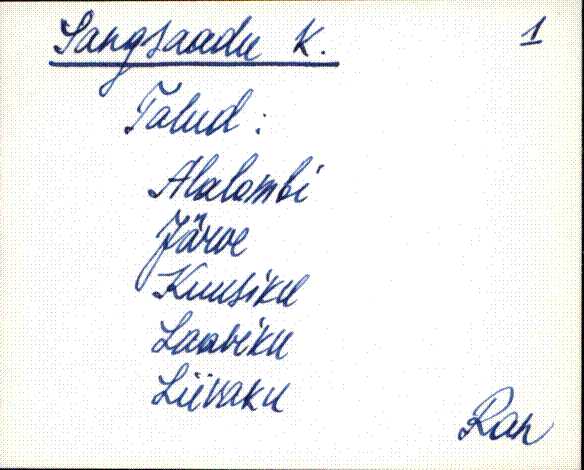 Sangsaadu K. 1
Talud:
Alalombi
Järve
Kuusiku
Laabiku
Liivaku
Ran